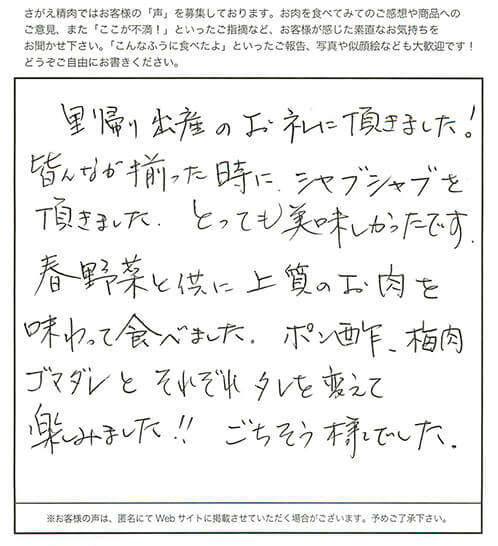 さがえ精肉ではお客様の「声」を募集しております。お肉を食べてみてのご感想や商品への
ご意見、また「ここが不満！」といったご指摘など、お客様が感じた素直なお気持ちを
お聞かせ下さい。「こんなふうに食べたよ」といったご報告、写真や似顔絵なども大歓迎です！
どうぞご自由にお書きください。
里帰り出産のお礼に頂きました！
皆んなが揃った時に、シャブシャブを
頂きました。とっても美味しかったです。
春野菜と供に上質のお肉を
味わって食べました。ポン酢、梅肉
ゴマダレとそれぞれタレを変えて
楽しみました!! ごちそう様でした。
※お客様の声は、匿名にてWebサイトに掲載させていただく場合がございます。予めご了承下さい。